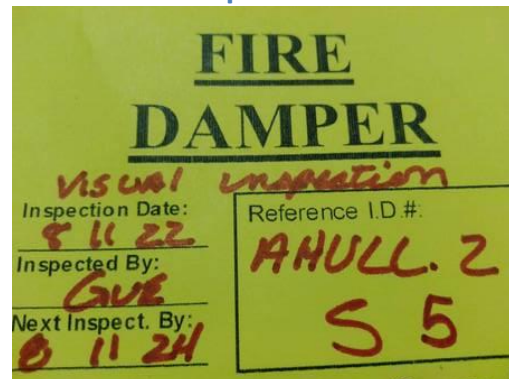 FIRE
DAMPER
VISUAL inspection
Inspection Date:
8 11 22
Inspected By:
GUE
Next Inspect. By:
8 11 24
Reference I.D.#:
AHULL. 2
S 5